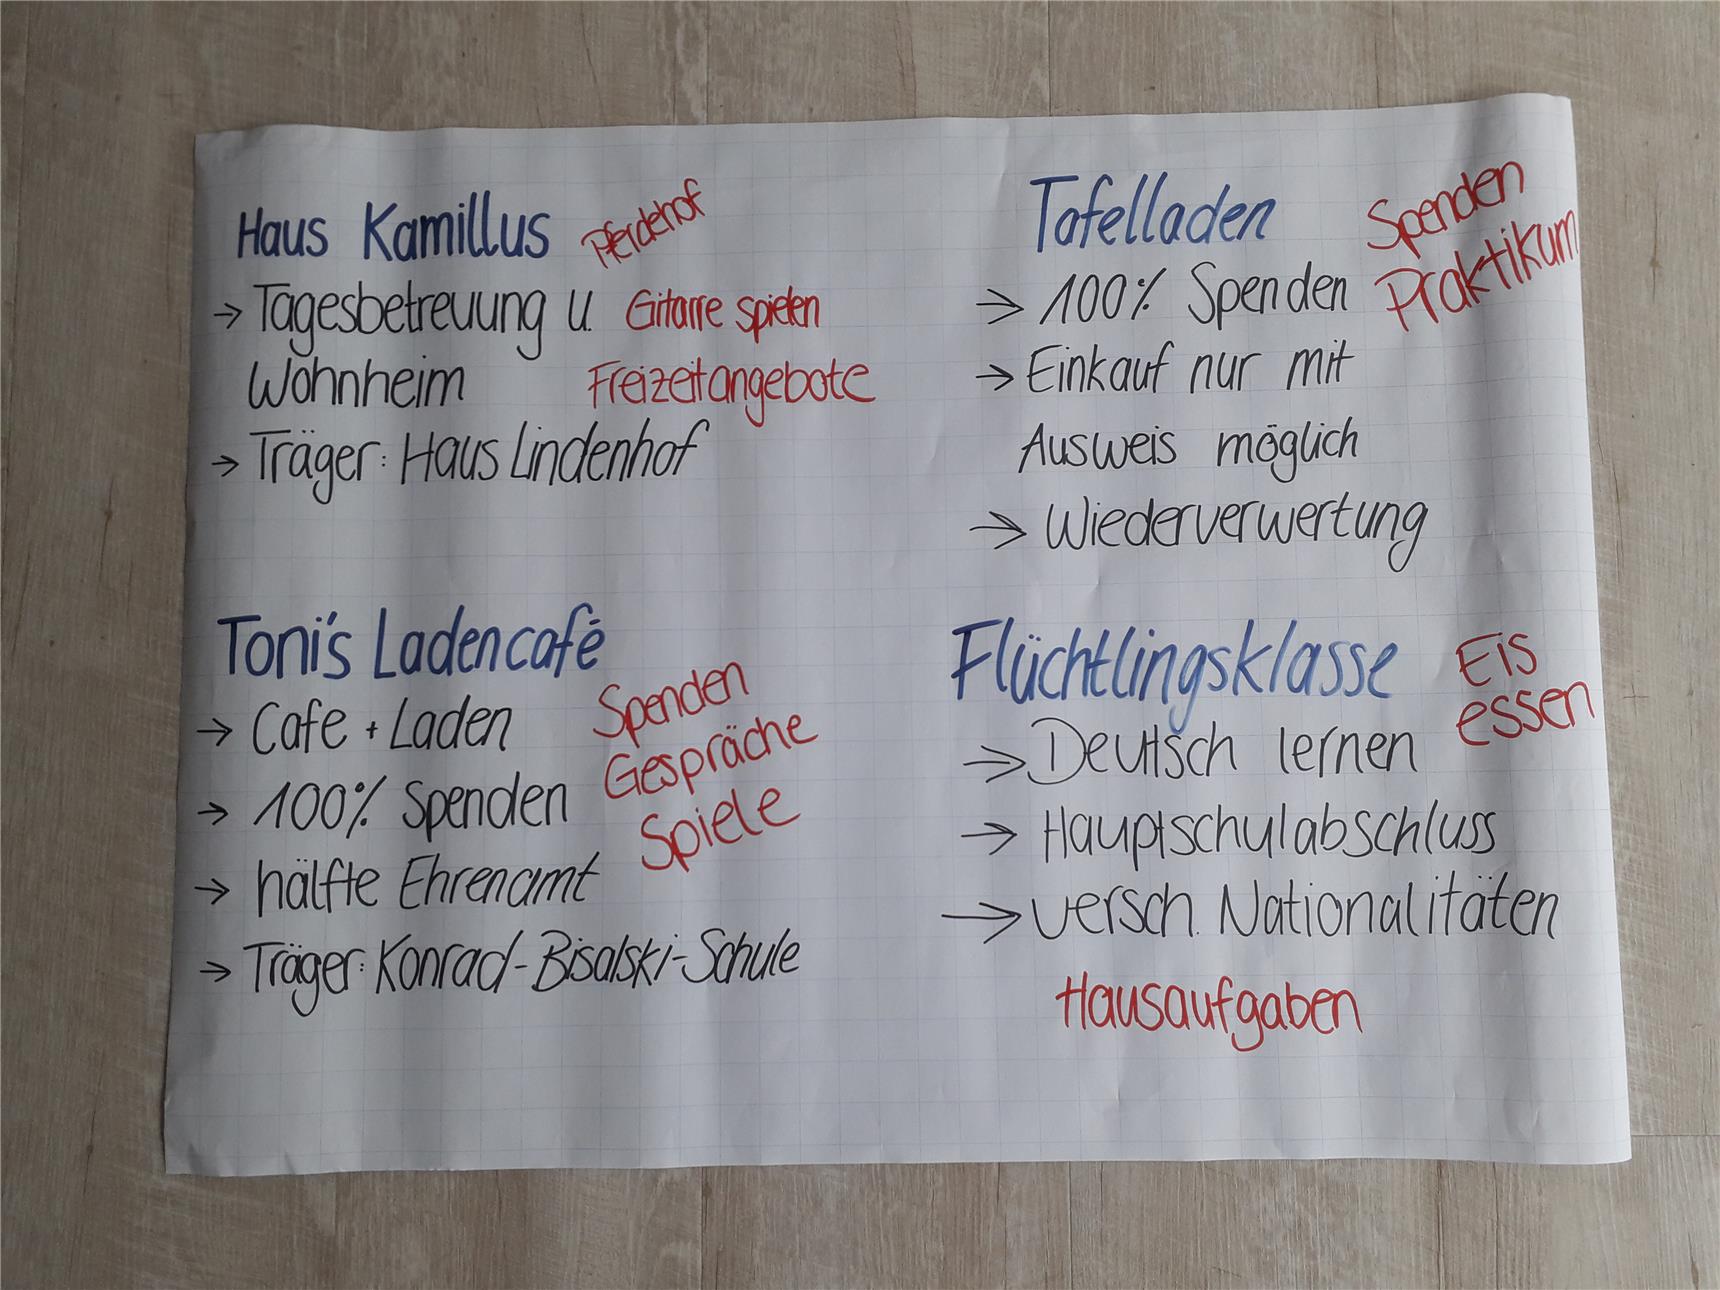 Haus Kamillus
Pferdehof
→ Tagesbetreuung u.
Gitarre spielen
Wohnheim
Freizeitangebote
→ Träger: Haus Lindenhof
Tafelladen
Spenden
Praktikum
→ 100% Spenden
→ Einkauf nur mit
Ausweis möglich
→ Wiederverwertung
Toni's Ladencafé
→ Cafe + Laden
Spenden
Gespräche
Spiele
→ 100% Spenden
→ hälfte Ehrenamt
→ Träger: Konrad-Bisalski-Schule
Flüchtlingsklasse
Eis
essen
→ Deutsch lernen
→ Hauptschulabschluss
→ versch. Nationalitäten
Hausaufgaben